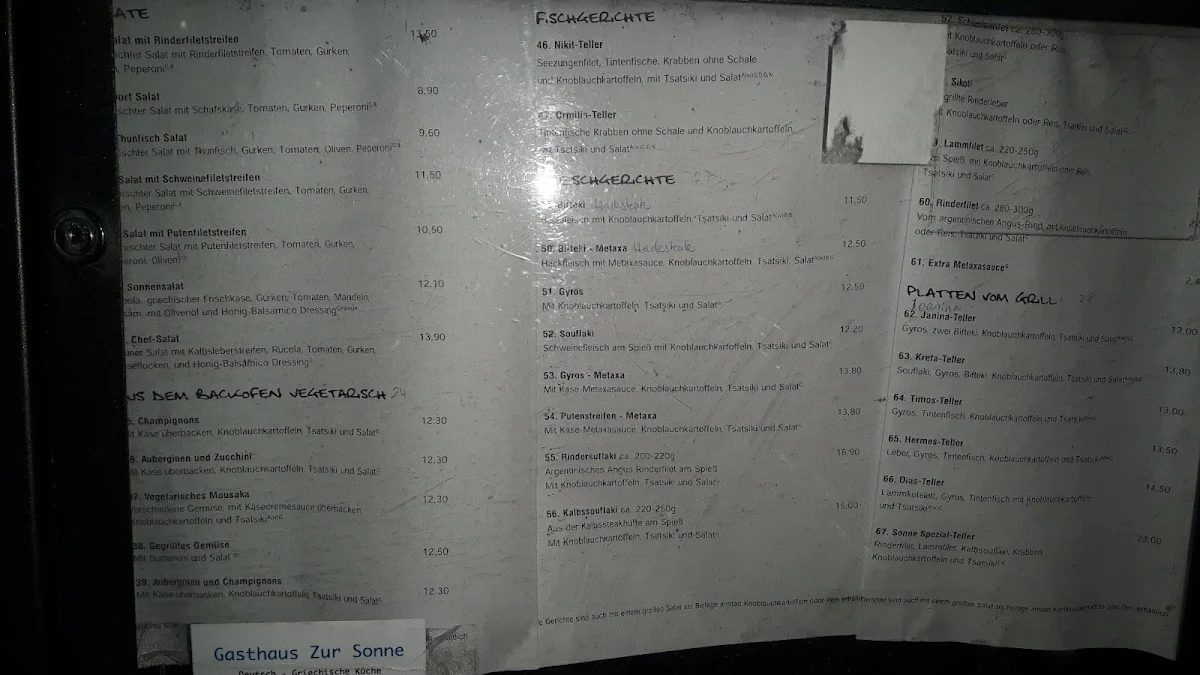 ATE
alat mit Rinderfiletstreifen 13,50
ischer Salat mit Rinderfiletstreifen, Tomaten, Gurken,
n, Peperoni
ort Salat 8,90
ischer Salat mit Schafskäse, Tomaten, Gurken, Peperoni
Thunfisch Salat 9,60
ischer Salat mit Thunfisch, Gurken, Tomaten, Oliven, Peperoni
Salat mit Schweinefiletstreifen 11,50
ischer Salat mit Schweinefiletstreifen, Tomaten, Gurken,
n, Peperoni
Salat mit Putenfiletstreifen 10,50
ischer Salat mit Putenfiletstreifen, Tomaten, Gurken,
eroni, Oliven
Sonnensalat 12,10
ola, griechischer Frischkäse, Gurken, Tomaten, Mandeln,
am, mit Olivenöl und Honig-Balsamico Dressing
Chef-Salat 13,90
üner Salat mit Kalbsleberstreifen, Rucola, Tomaten, Gurken,
seflocken, und Honig-Balsamico Dressing
US DEM BACKOFEN VEGETARISCH 24
5. Champignons 12,30
it Käse überbacken, Knoblauchkartoffeln, Tsatsiki und Salat
6. Auberginen und Zucchini 12,30
it Käse überbacken, Knoblauchkartoffeln, Tsatsiki und Salat
37. Vegetarisches Mousaka 12,30
Verschiedene Gemüse, mit Käsecremesauce überbacken
Knoblauchkartoffeln und Tsatsiki
38. Gegrilltes Gemüse 12,50
Mit Butterreis und Salat
39. Auberginen und Champignons 12,30
Mit Käse überbacken, Knoblauchkartoffeln, Tsatsiki und Salat
Gasthaus Zur Sonne
Deutsch - Griechische Küche
FISCHGERICHTE
46. Nikit-Teller
Seezungenfilet, Tintenfische, Krabben ohne Schale
und Knoblauchkartoffeln, mit Tsatsiki und Salat
47. Ormilia-Teller
Tintenfische Krabben ohne Schale und Knoblauchkartoffeln,
mit Tsatsiki und Salat
ESCHGERICHTE 27
Bifteki Hacksteak 11,50
Hackfleisch mit Knoblauchkartoffeln, Tsatsiki und Salat
50. Bifteki - Metaxa Hacksteak 12,50
Hackfleisch mit Metaxasauce, Knoblauchkartoffeln, Tsatsiki, Salat
51. Gyros 12,50
Mit Knoblauchkartoffeln, Tsatsiki und Salat
52. Souflaki 12,20
Schweinefleisch am Spieß mit Knoblauchkartoffeln, Tsatsiki und Salat
53. Gyros - Metaxa 13,80
Mit Käse-Metaxasauce, Knoblauchkartoffeln, Tsatsiki und Salat
54. Putenstreifen - Metaxa 13,80
Mit Käse-Metaxasauce, Knoblauchkartoffeln, Tsatsiki und Salat
55. Rindersuflaki ca. 200-220g 16,90
Argentinisches Angus Rinderfilet am Spieß
Mit Knoblauchkartoffeln, Tsatsiki und Salat
56. Kalbssouflaki ca. 220-250g 15,00
Aus der Kalbssteakhüfte am Spieß
Mit Knoblauchkartoffeln, Tsatsiki und Salat
e Gerichte sind auch mit einem großen Salat als Beilage anstatt Knoblauchkartoffeln oder Reis erhält
57. Schweinefilet ca. 280-300g
it Knoblauchkartoffeln oder Reis,
atsiki und Salat
Sikoti
grillte Rinderleber
it Knoblauchkartoffeln oder Reis, Tsatsiki und Salat
Lammfilet ca. 220-250g
m Spieß, mit Knoblauchkartoffeln oder Reis,
Tsatsiki und Salat
60. Rinderfilet ca. 280-300g
Vom argentinischen Angus-Rind, mit Knoblauchkartoffeln
oder Reis, Tsatsiki und Salat
61. Extra Metaxasauce
PLATTEN VOM GRILL 28
Ioanina
62. Janina-Teller 13,00
Gyros, zwei Bifteki, Knoblauchkartoffeln, Tsatsiki und Salat
63. Kreta-Teller 13,80
Souflaki, Gyros, Bifteki, Knoblauchkartoffeln, Tsatsiki und Salat
64. Timos-Teller 13,00
Gyros, Tintenfisch, Knoblauchkartoffeln und Tsatsiki
65. Hermes-Teller 13,50
Leber, Gyros, Tintenfisch, Knoblauchkartoffeln und Tsatsiki
66. Dias-Teller 14,50
Lammkotelett, Gyros, Tintenfisch mit Knoblauchkartoffeln
und Tsatsiki
67. Sonne Spezial-Teller 23,00
Rinderfilet, Lammfilet, Kalbsouflaki, Krabben
Knoblauchkartoffeln und Tsatsiki
erichte sind auch mit einem großen Salat als Beilage anstatt Knoblauchkartoffeln oder Reis erhältlich